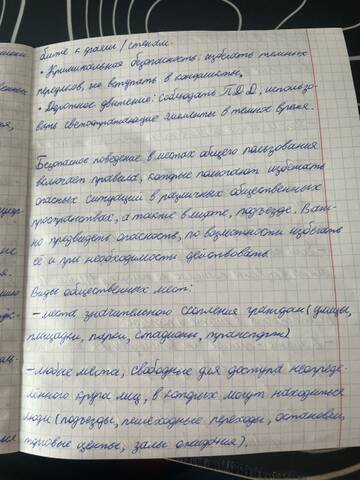 ближе к краям/стенам.
• Криминальная безопасность: избегать темных
переулков, не вступать в конфликты.
• Дорожное движение: соблюдать ПДД, использо-
вать светоотражающие элементы в темное время.
Безопасное поведение в местах общего пользования
включает правила, которые помогают избежать
опасных ситуаций в различных общественных
пространствах, а также в лифте, подъезде. Важ-
но предвидеть опасность, по возможности избегать
её и при необходимости действовать.
Виды общественных мест:
– места значительного скопления граждан (улицы,
площадки, парки, стадионы, транспорт)
– любые места, свободные для доступа неопреде-
лённого круга лиц, в которых могут находиться
люди (подъезды, пешеходные переходы, остановки,
торговые центры, залы ожидания).